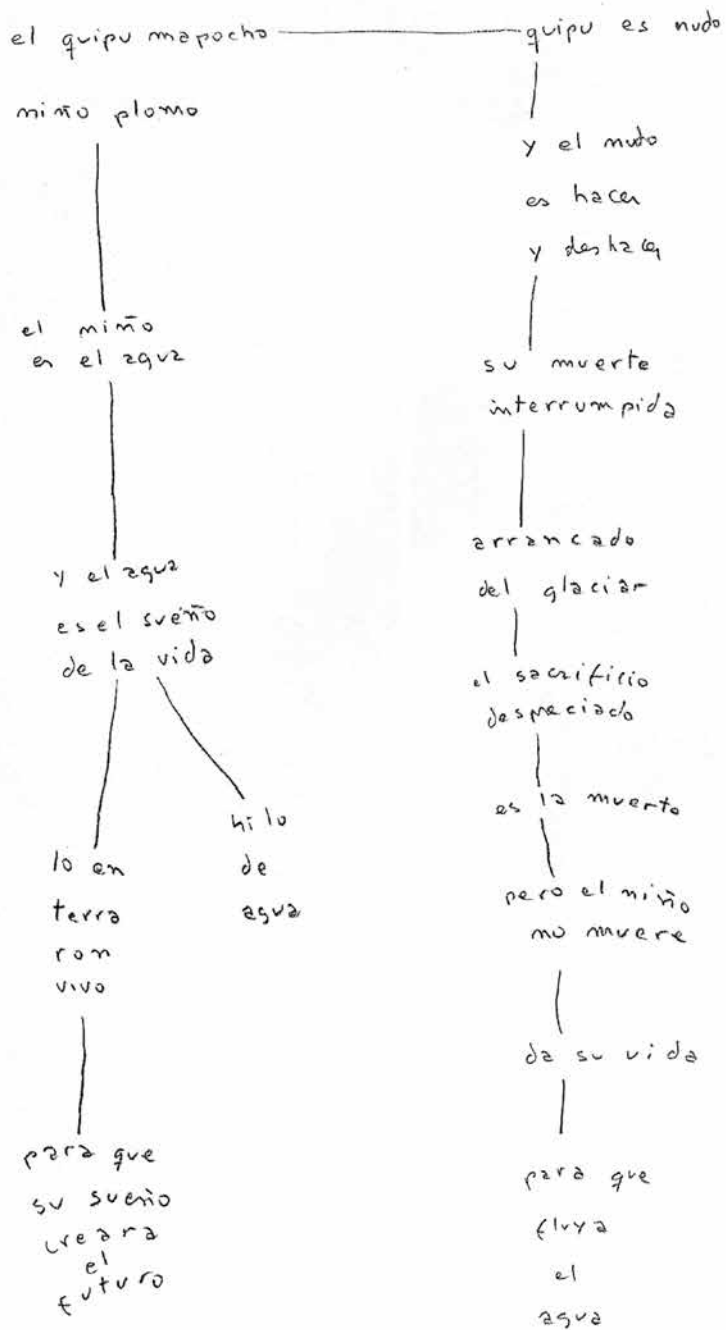 el quipu mapocho
niño plomo
el niño
es el agua
y el agua
es el sueño
de la vida
lo en
terra
ron
vivo
para que
su sueño
creara
el
futuro
hilo
de
agua
quipu es nudo
y el nudo
es hacer
y deshacer
su muerte
interrumpida
arrancado
del glaciar
el sacrificio
despreciado
es la muerte
pero el niño
no muere
da su vida
para que
fluya
el
agua